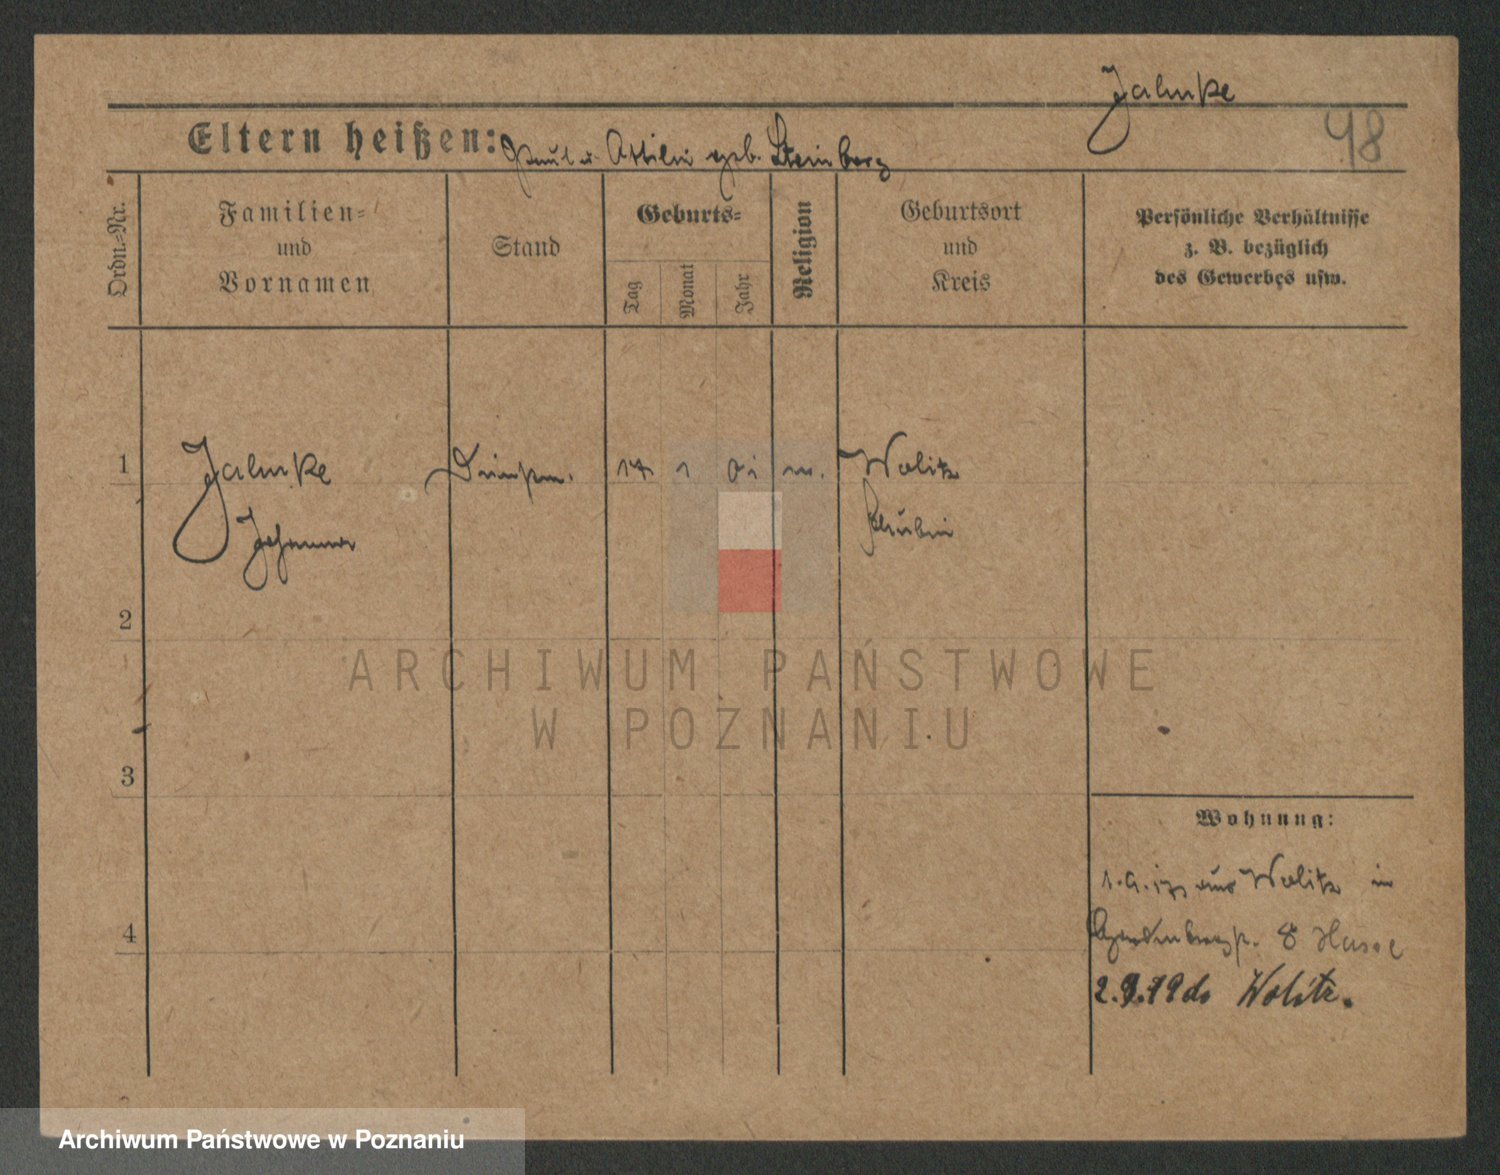 Jahnke
48
Eltern heißen: Paul u. Ottilie geb. Steinberg
Ordn.-Nr.
Familien-
und
Vornamen
Stand
Geburts-
Tag
Monat
Jahr
Religion
Geburtsort
und
Kreis
Persönliche Verhältnisse
z. B. bezüglich
des Gewerbes usw.
1
Jahnke
17
1
01
Wolitz
Johanna
Schubin
2
ARCHIWUM PAŃSTWOWE
W POZNANIU
3
Wohnung:
aus Wolitz in
8 Hasse
4
2.9.19 do Wolitz.
Archiwum Państwowe w Poznaniu